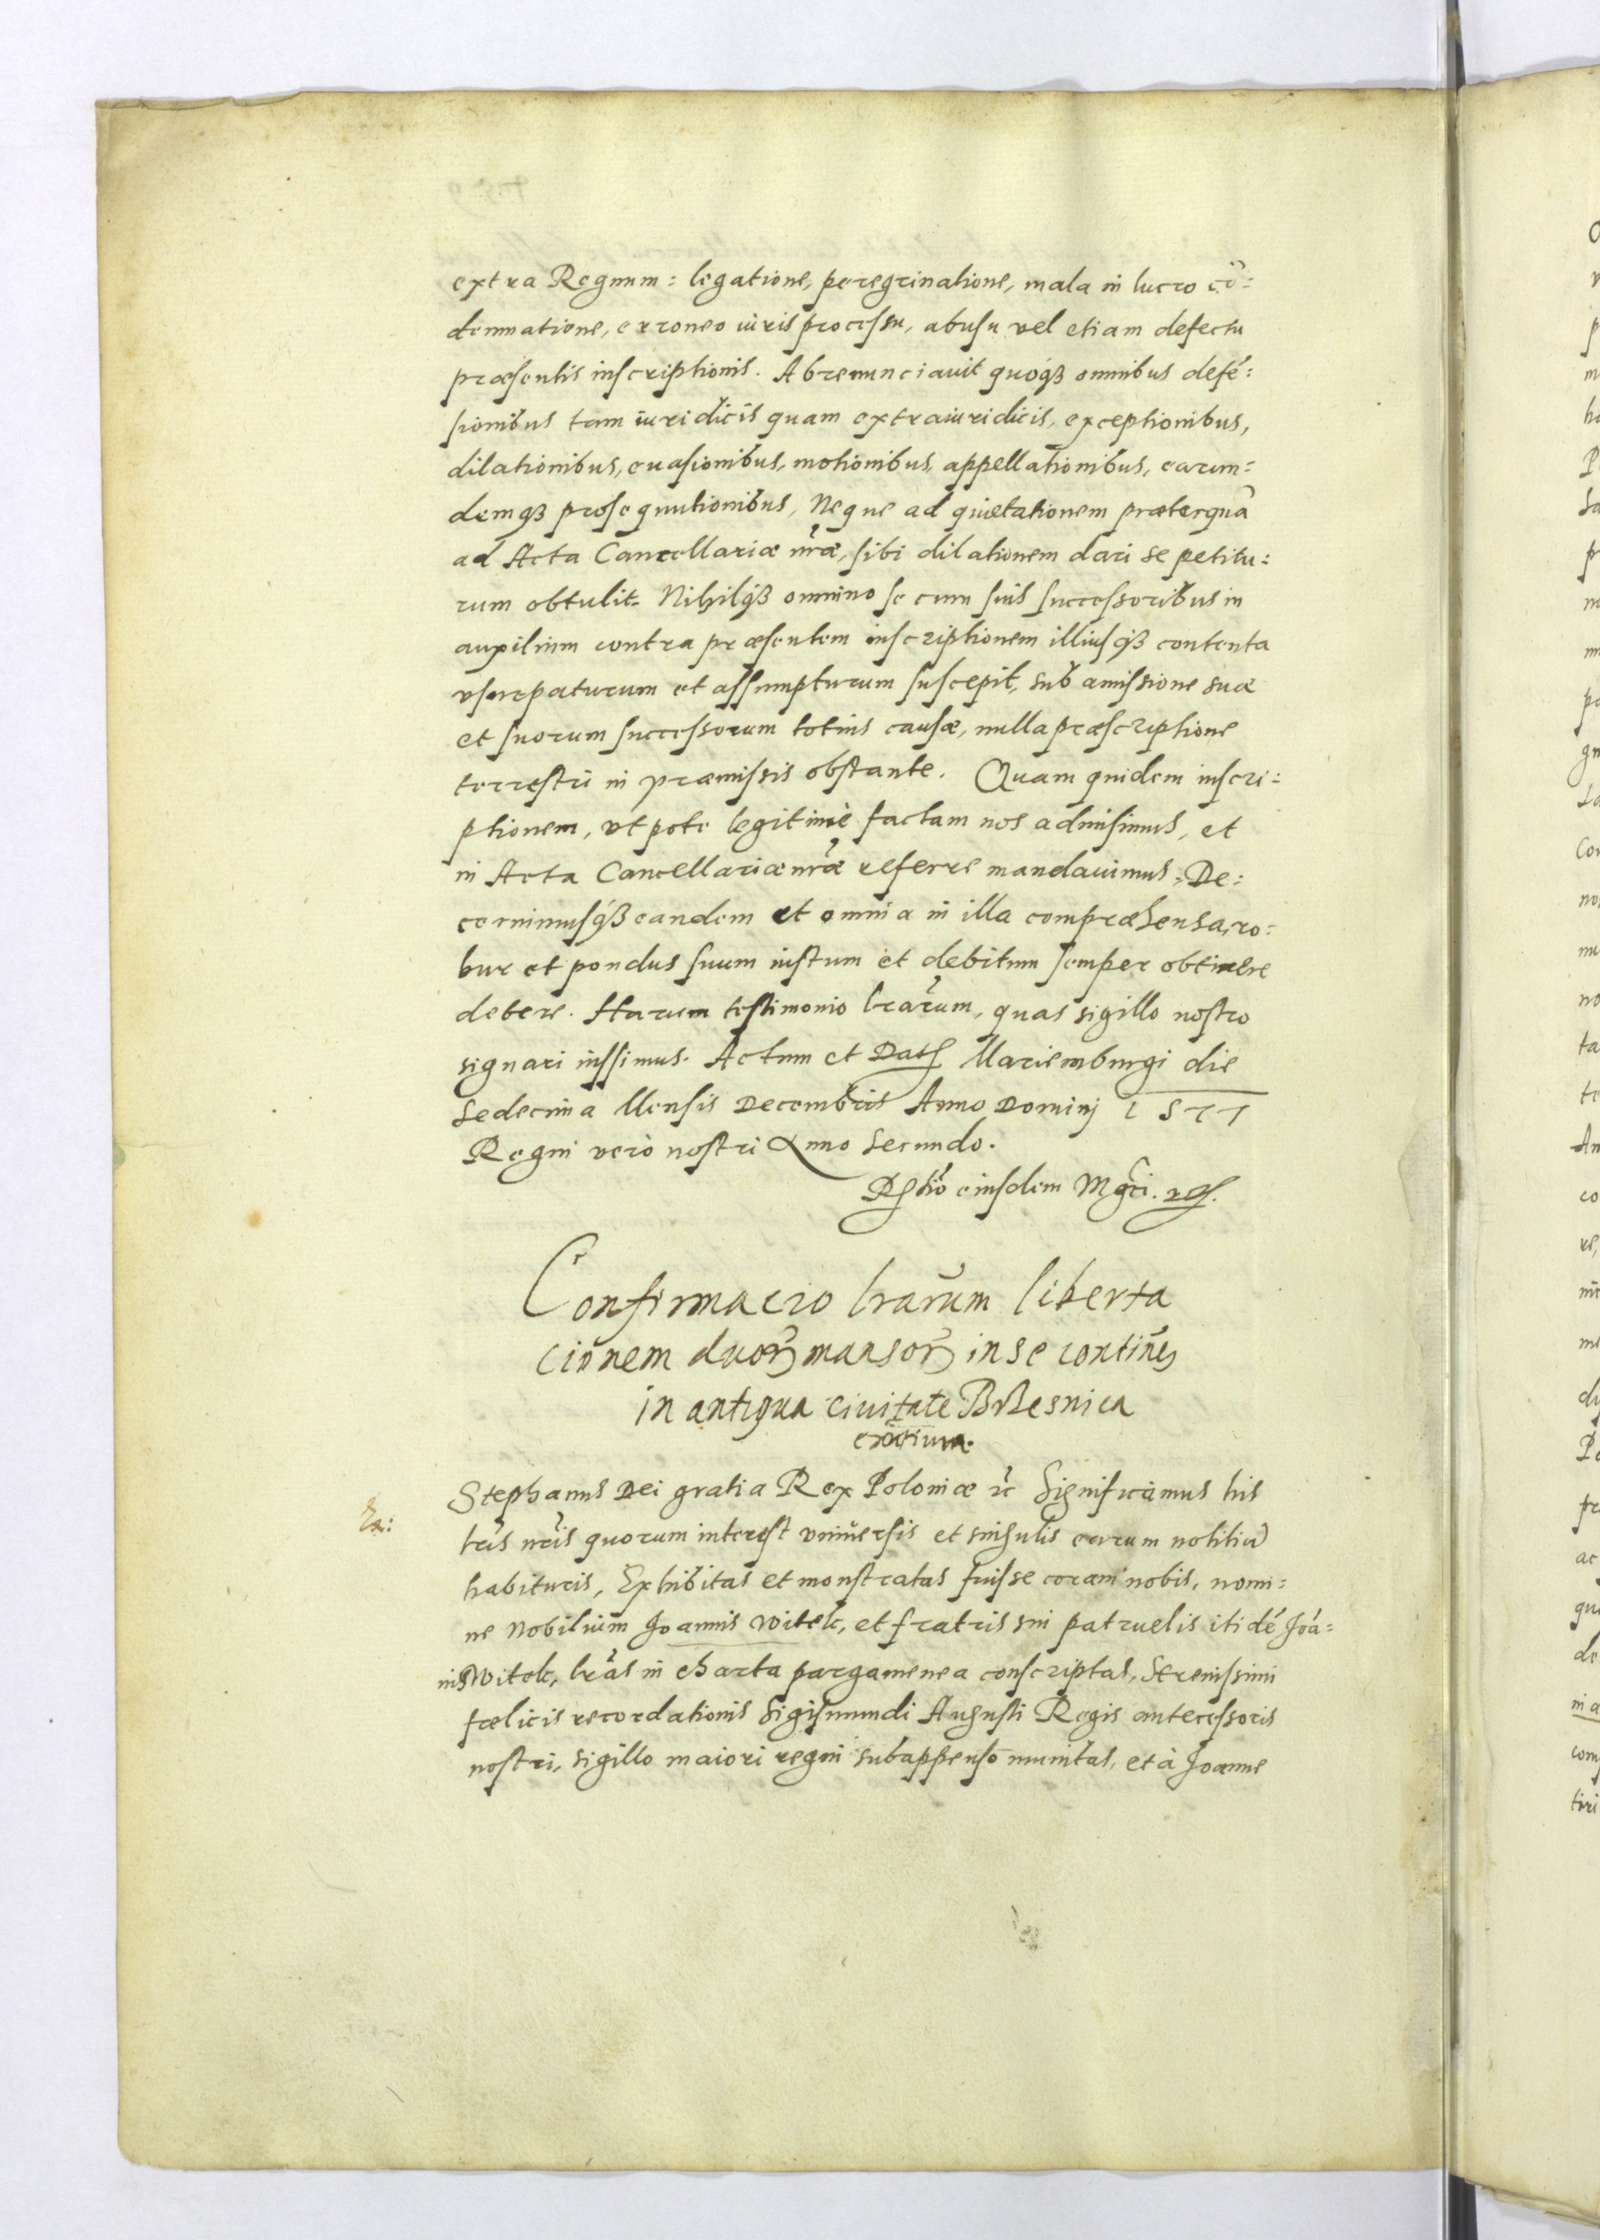 extra Regnum: legatione, peregrinatione, mala in lucro cō:
demnatione, erroneo iuris processu, abusu vel etiam defectu
præsentis inscriptionis. Abrenunciauit quoqȝ omnibus defē:
sionibus tam iuridicis quam extraiuridicis, exceptionibus,
dilationibus, euasionibus, motionibus, appellationibus, earum:
demqȝ prosequutionibus, Neque ad quietationem præterquā
ad Acta Cancellariæ nr̃æ, sibi dilationem dari se petitu:
rum obtulit. Nihilqȝ omnino se cum suis successoribus in
auxilium contra præsentem inscriptionem illiusqȝ contenta
vsurpaturum et assumpturum suscepit, sub amissione suæ
et suorum successorum totius causæ, nulla præscriptione
terrestri in præmissis obstante. Quam quidem inscri:
ptionem, vt pote legitimè factam nos admisimus, et
in Acta Cancellariæ nr̃æ referre mandauimus, De:
cernimusqȝ eandem et omnia in illa compræhensa, ro:
bur et pondus suum iustum et debitum semper obtinere
debere. Harum testimonio lrãrum, quas sigillo nostro
signari iussimus. Actum et Datȝ Mariemburgi die
Sedecima Mensis Decembris Anno Dominj 1577
Regni verò nostri Anno Secundo.
Rȝtio eiusdem Mgci. vȝ.
Confirmacio lrarũm liberta
ciõnem duorȝ mansorȝ in se contineñ
in antiqua ciuitate Brzesnica
Stephanus Dei gratia Rex Poloniæ ꝛc̃ Significamus his
lrĩs nrĩs quorum interest vniuersis et singulis earum notitiã
habituris, Exhibitas et monstratas fuisse coram nobis, nomi:
ne Nobilium Joannis Witek, et fratris sui patruelis itidē Joā:
nis Witek, lrãs in charta pargamenea conscriptas, Serenissimi
fœlicis recordationis Sigismundi Augusti Regis antecessoris
nostri, sigillo maiori regni subappenso munitas, et à Joanne